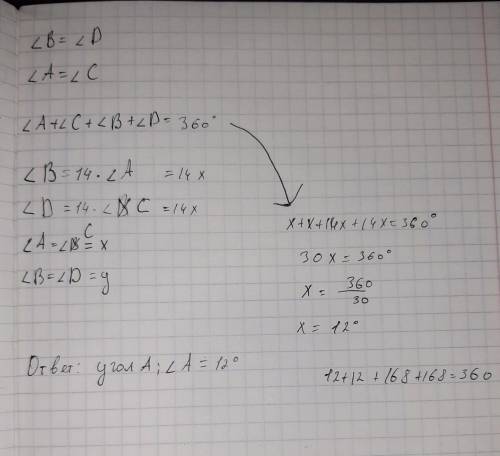 ∠B = ∠D
∠A = ∠C
∠A+∠C+∠B+∠D = 360°
∠B = 14 · ∠A = 14x
∠D = 14 · ∠C = 14x
∠A = ∠C = x
∠B = ∠D = y
x+x+14x+14x = 360°
30x = 360°
x = 360/30
x = 12°
Ответ: угол A; ∠A = 12°
12+12+168+168=360